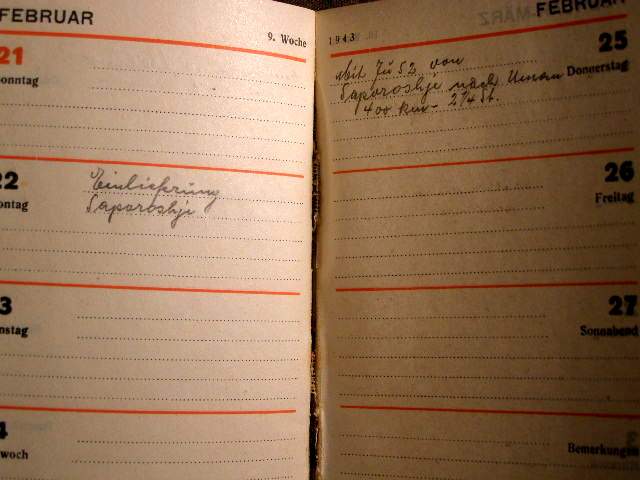 FEBRUAR
9. Woche
21
onntag
22
ontag
Einlieferung
Saporoshje
3
enstag
4
woch
1943
MÄRZ
FEBRUAR
25
Donnerstag
Mit Ju 52 von
Saporoshje nach Uman
400 km - 2¼ St.
26
Freitag
27
Sonnabend
Bemerkungen